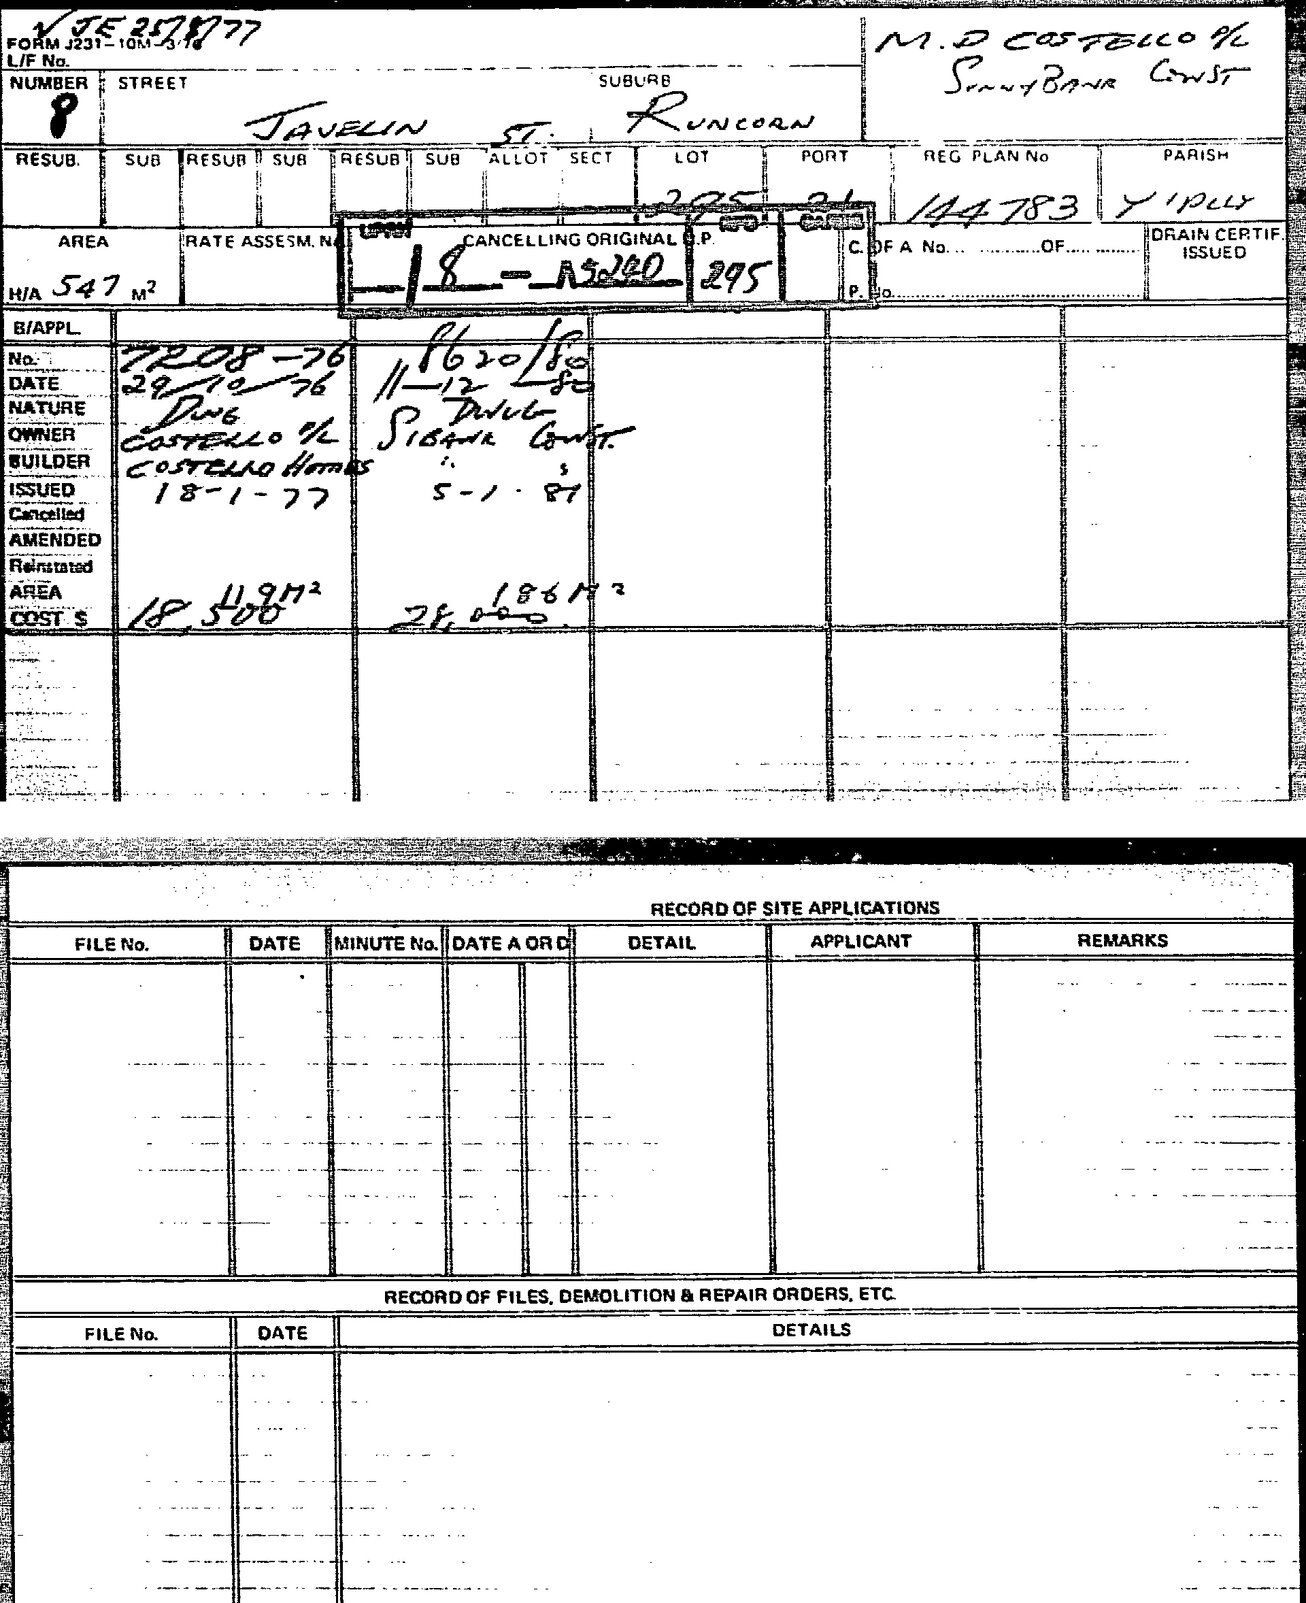 √ JE 25/8/77
FORM J231–10M–3/76
L/F No.
M. D COSTELLO P/L
SUNNYBANK CONST
NUMBER STREET SUBURB
8 JAVELIN ST. RUNCORN
RESUB. SUB RESUB SUB RESUB SUB ALLOT SECT LOT PORT REG PLAN No PARISH
295 144783 Y'PLLY
AREA RATE ASSESM. No CANCELLING ORIGINAL C. OF A No. OF DRAIN CERTIF. ISSUED
8 – 295
H/A 547 M² P. No
B/APPL.
No. 7208–76 8620/80
DATE 29/10/76 11–12–80
NATURE DWG DWLG
OWNER COSTELLO P/L S'BANK CONST.
BUILDER COSTELLO HOMES
ISSUED 18-1-77 5-1-81
Cancelled
AMENDED
Reinstated
AREA 119M² 186M²
COST $ 18,500 28,000
RECORD OF SITE APPLICATIONS
FILE No. DATE MINUTE No. DATE A OR D DETAIL APPLICANT REMARKS
RECORD OF FILES, DEMOLITION & REPAIR ORDERS, ETC.
FILE No. DATE DETAILS